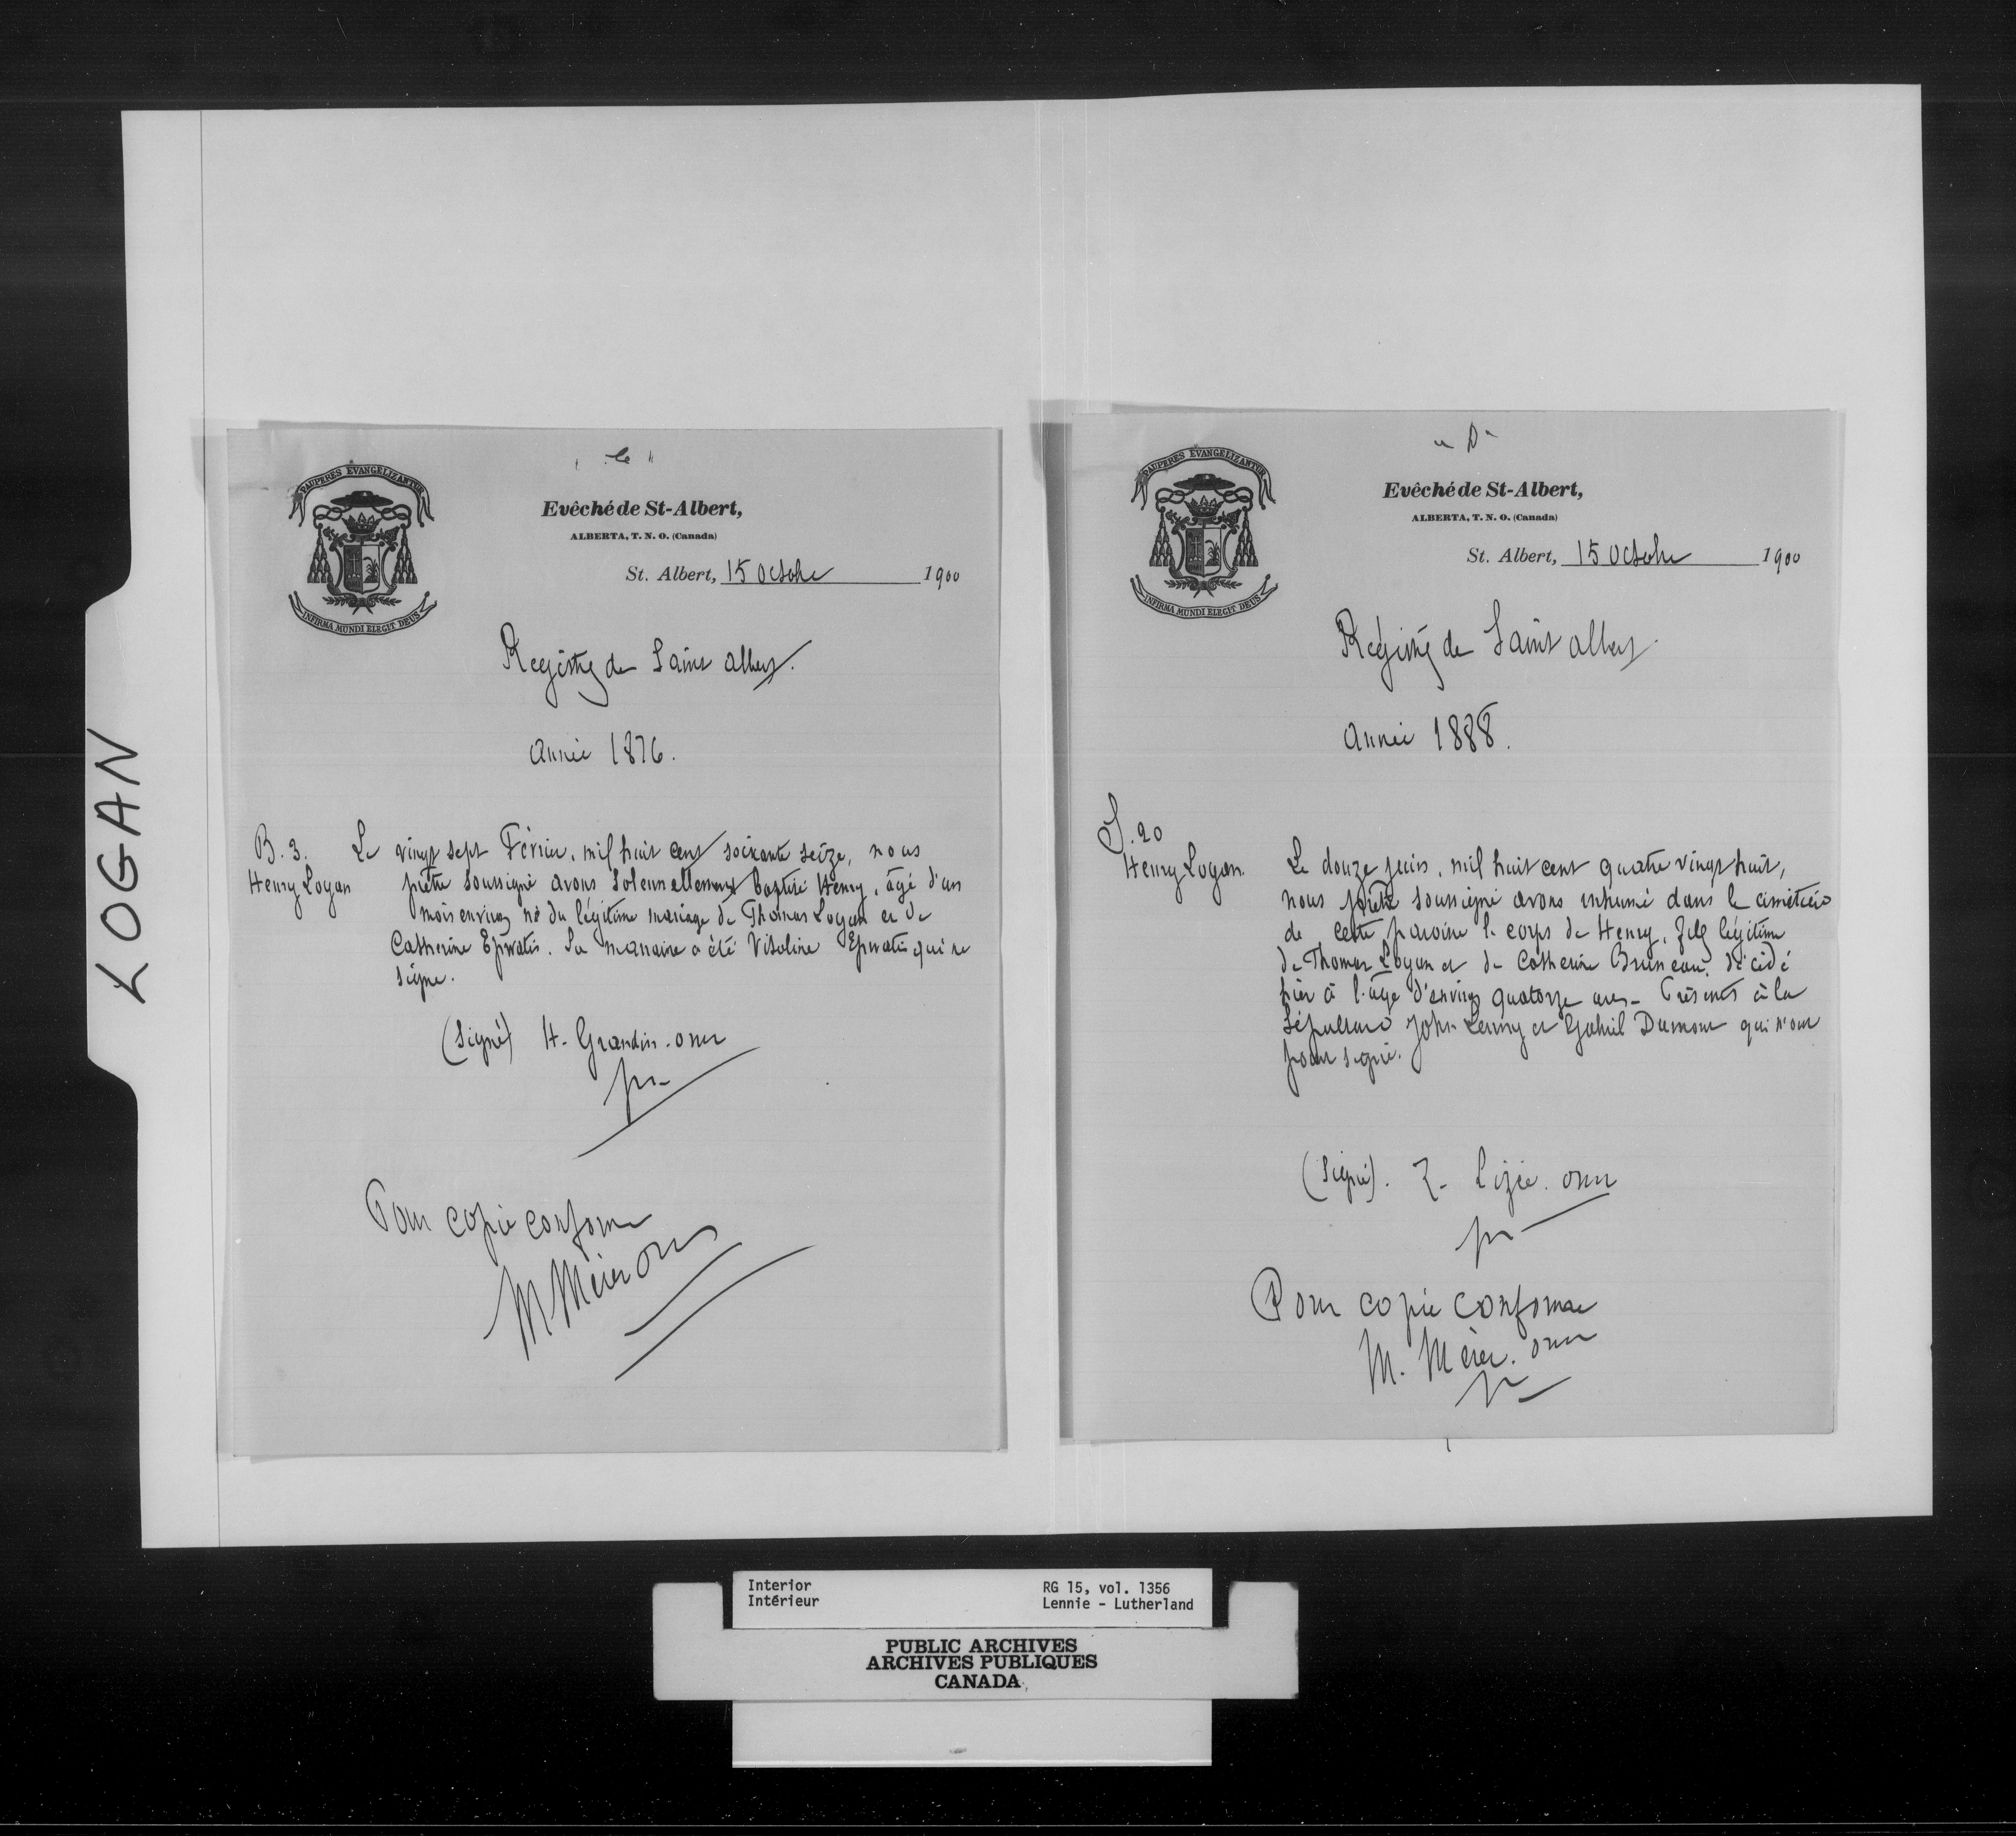 LOGAN
"C"
PAUPERES EVANGELIZANTUR
INFIRMA MUNDI ELEGIT DEUS
Evêché de St-Albert,
ALBERTA, T. N. O. (Canada)
St. Albert, 15 Octobre 1900
Registre de Saint Albert.
Année 1876.
B. 3.
Henry Logan
Le vingt sept Février, mil huit cent soixante seize, nous
prêtre soussigné avons solennellement baptisé Henry, âgé d'un
mois environ né du légitime mariage de Thomas Logan et de
Catherine. Sa marraine a été qui ne
signe.
(Signé) H. Grandin. omi
ptr
Pour copie conforme
M Mérer omi
"D"
PAUPERES EVANGELIZANTUR
INFIRMA MUNDI ELEGIT DEUS
Evêché de St-Albert,
ALBERTA, T. N. O. (Canada)
St. Albert, 15 Octobre 1900
Régistre de Saint Albert
Année 1888.
S. 20
Henry Logan.
Le douze juin, mil huit cent quatre vingt huit,
nous prêtre soussigné avons inhumé dans le cimetière
de cette paroisse le corps de Henry, fils légitime
de Thomas Logan et de Catherine Bruneau, décédé
hier à l'âge d'environ quatorze ans. Présents à la
Sépulture John et Gabriel Dumont qui n'ont
point signé.
(Signé). Z. Lizée. omi
ptr
Pour copie conforme
M. Mérer. omi
ptr
Interior
Intérieur
RG 15, vol. 1356
Lennie - Lutherland
PUBLIC ARCHIVES
ARCHIVES PUBLIQUES
CANADA